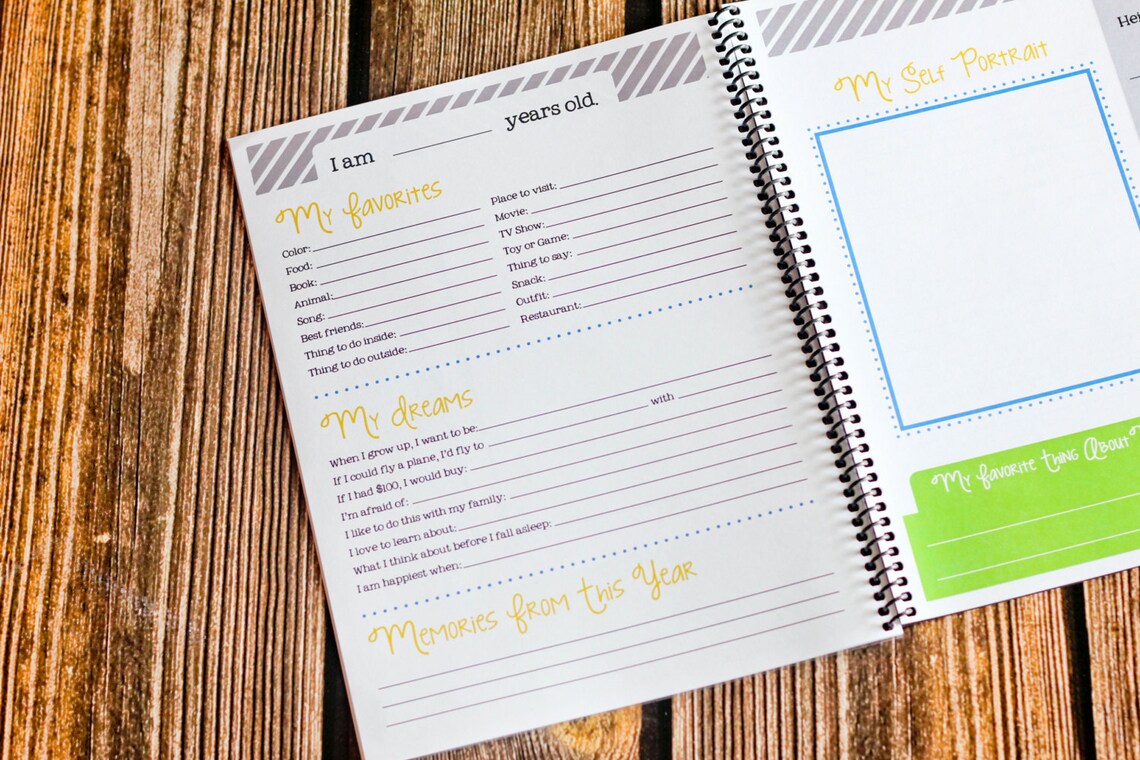 I am ________ years old.
My favorites
Color:
Food:
Book:
Animal:
Song:
Best friends:
Thing to do inside:
Thing to do outside:
Place to visit:
Movie:
TV Show:
Toy or Game:
Thing to say:
Snack:
Outfit:
Restaurant:
My dreams
When I grow up, I want to be:
If I could fly a plane, I'd fly to ________ with
If I had $100, I would buy:
I'm afraid of:
I like to do this with my family:
I love to learn about:
What I think about before I fall asleep:
I am happiest when:
Memories from this Year
My Self Portrait
My favorite thing About